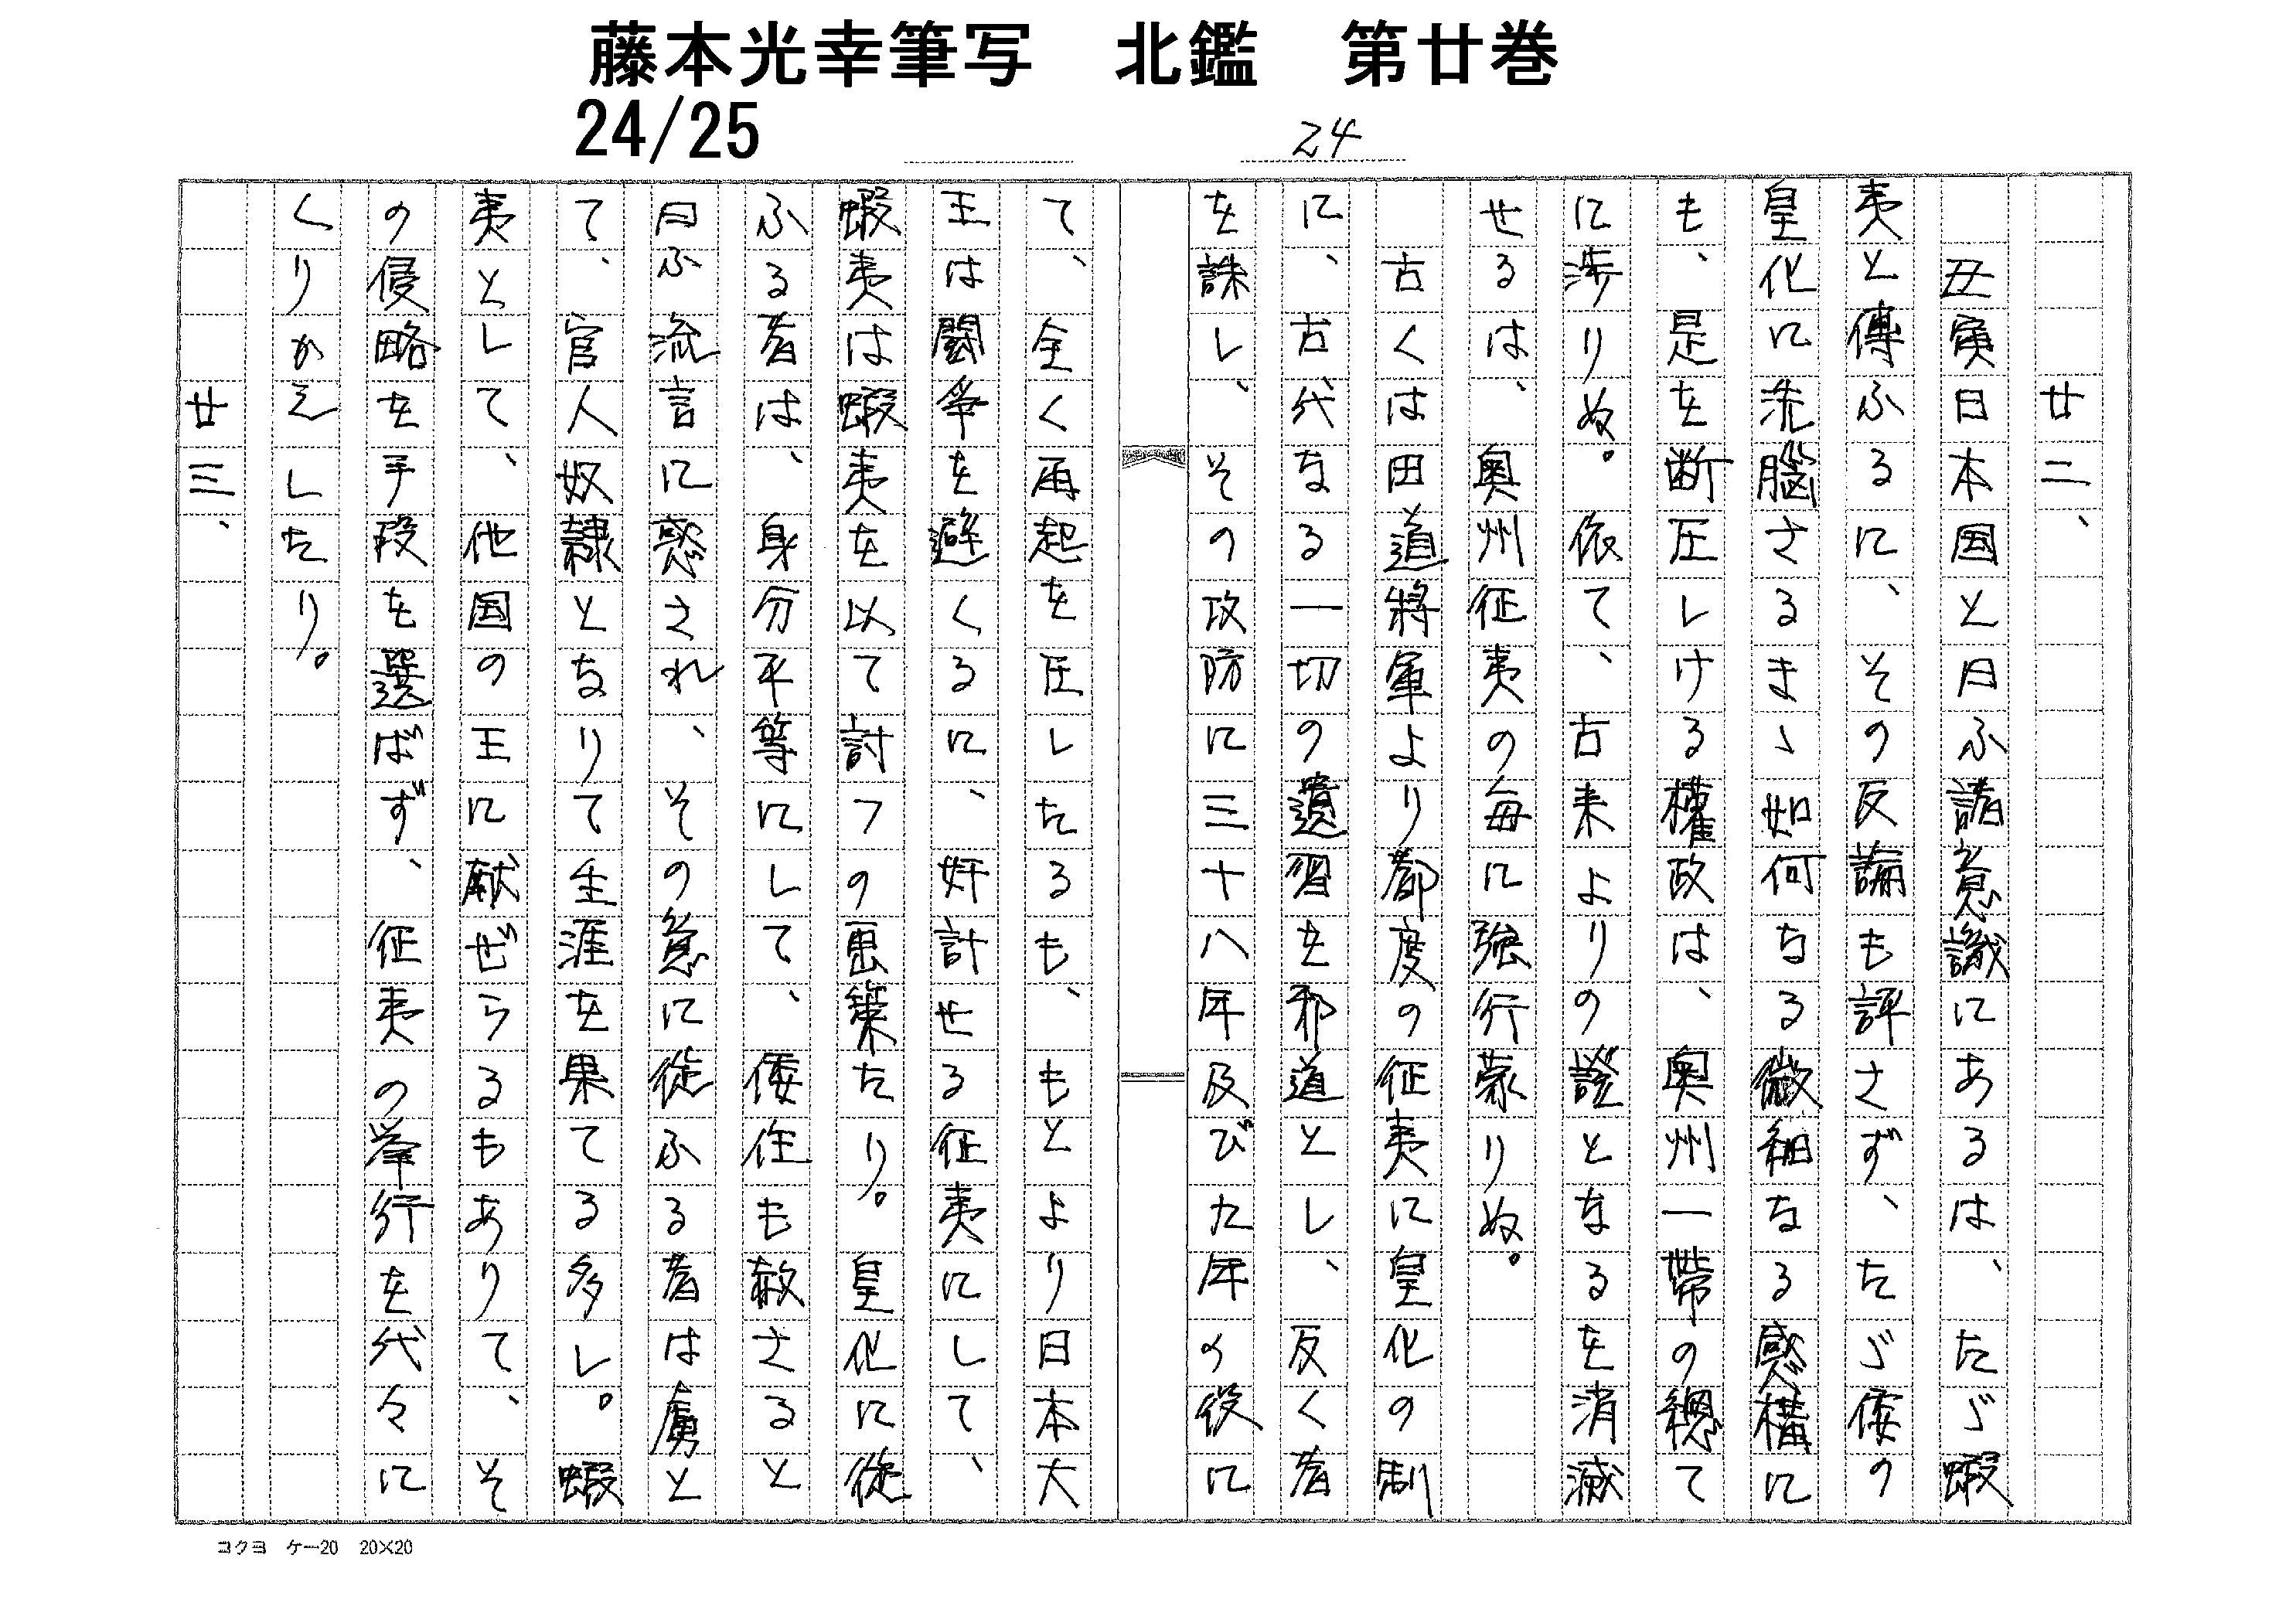 藤本光幸筆写　北鑑　第廿巻
24/25
24
廿二、
丑寅日本国と曰ふ諸意識にあるは、たゞ蝦
夷と傳ふるに、その反論も評さず、たゞ倭の
皇化に洗脳さるまゝ如何なる微細なる惑構に
も、是を断圧しける権政は、奥州一帯の總て
に渉りぬ。依て、古来よりの證となるを消滅
せるは、奥州征夷の毎に強行蒙りぬ。
古くは田道將軍より都度の征夷に皇化の制
に、古代なる一切の遺習を邪道とし、反く者
を誅し、その攻防に三十八年及び九年の役に
て、全く再起を圧したるも、もとより日本大
王は闘争を避くるに、奸計せる征夷にして、
蝦夷は蝦夷を以て討つの画策たり。皇化に従
ふる者は、身分平等にして、倭住も赦さると
曰ふ流言に惑され、その意に従ふる者は虜と
て、官人奴隷となりて生涯を果てる多し。蝦
夷として、他国の王に献ぜらるもありて、そ
の侵略を手段を選ばず、征夷の挙行を代々に
くりかえしたり。
廿三、
コクヨ　ケー20　20×20